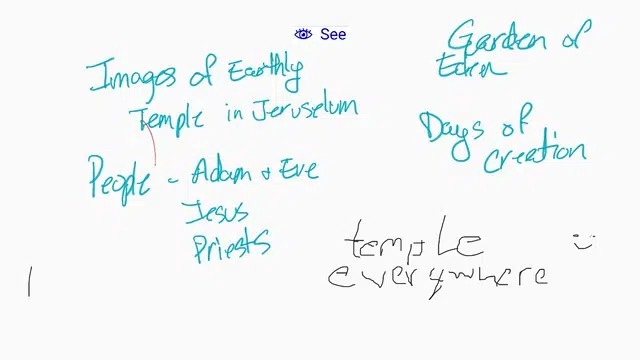 See
Images of Earthly
Temple in Jeruselum
People - Adam + Eve
Jesus
Priests
Garden of
Eden
Days of
Creation
temple
everywhere